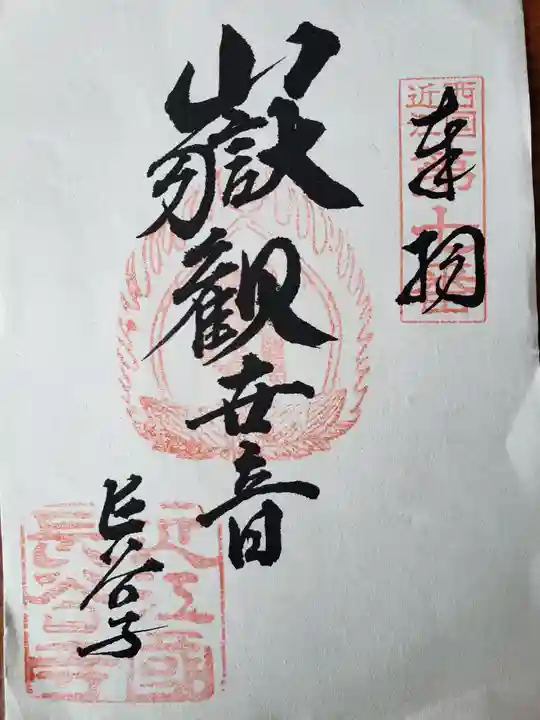 奉拝
西国
近江
第十番
嶽観世音
長谷寺
近江國
長谷寺